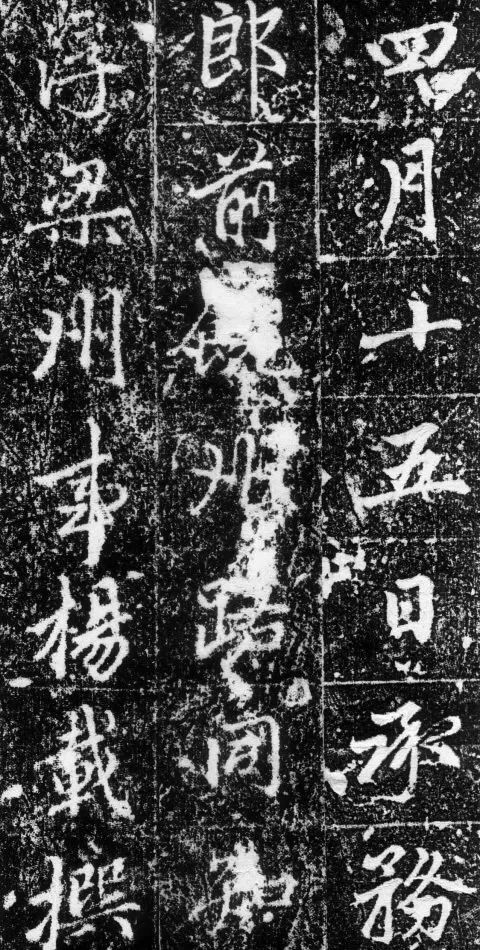 四月十五日承務
郎前州路同知
浮梁州事楊載撰